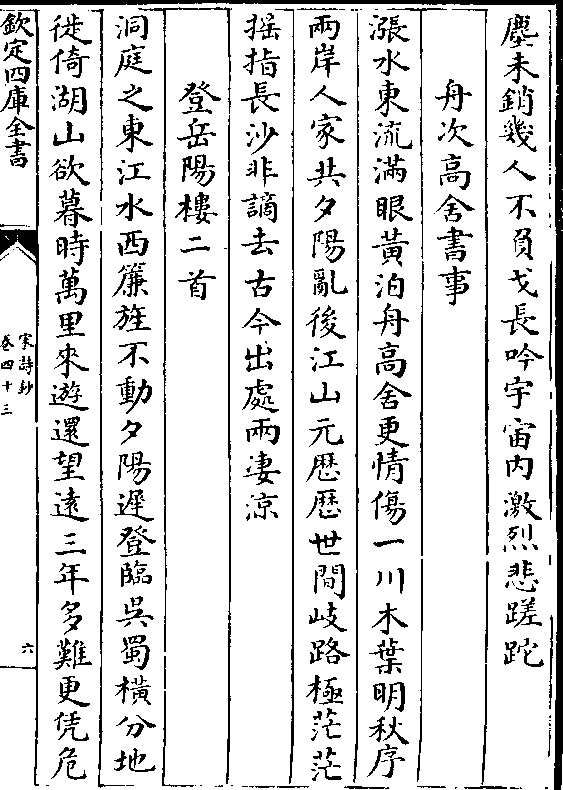 塵未銷幾人不負戈長吟宇宙内激烈悲蹉跎
舟次高舍書事
漲水東流滿眼黃泊舟高舍更情傷一川木葉明秋序
兩岸人家共夕陽亂後江山元歴歴世間岐路極茫茫
揺指長沙非謫去古今出處兩凄涼
登岳陽樓二首
洞庭之東江水西簾旌不動夕陽遲登臨吳蜀橫分地
徙倚湖山欲暮時萬里來遊還望遠三年多難更凭危
欽定四庫全書
宋詩鈔
卷四十三
六